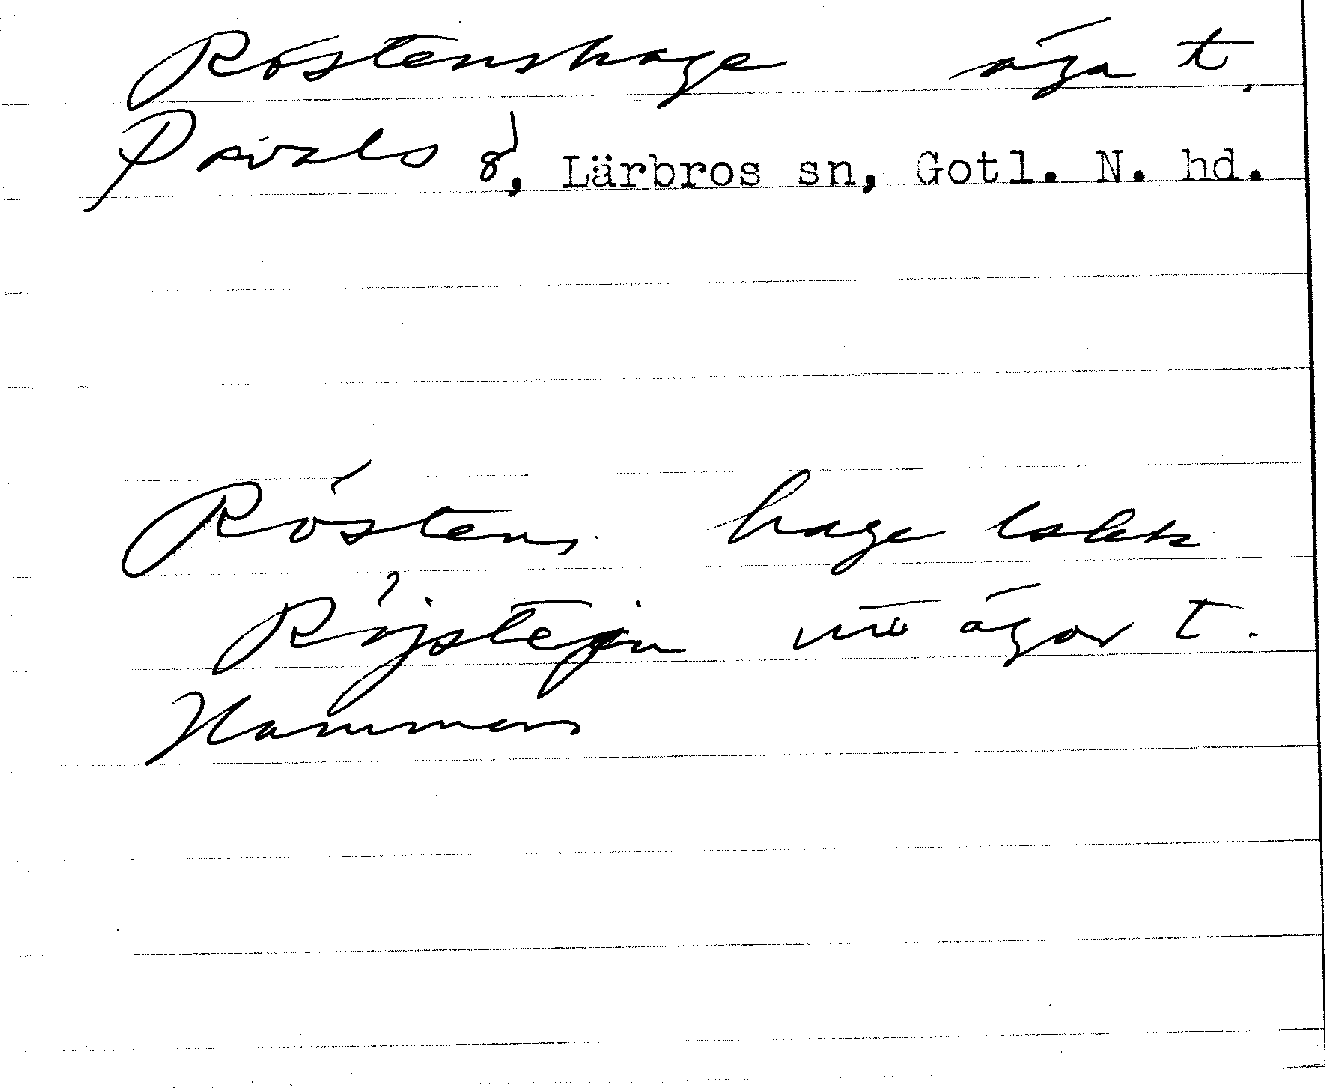 Röstenshage äga t.
Pavals 8, Lärbros sn, Gotl. N. hd.
Röstens hage
Röjstejn ägor t.
Hammars